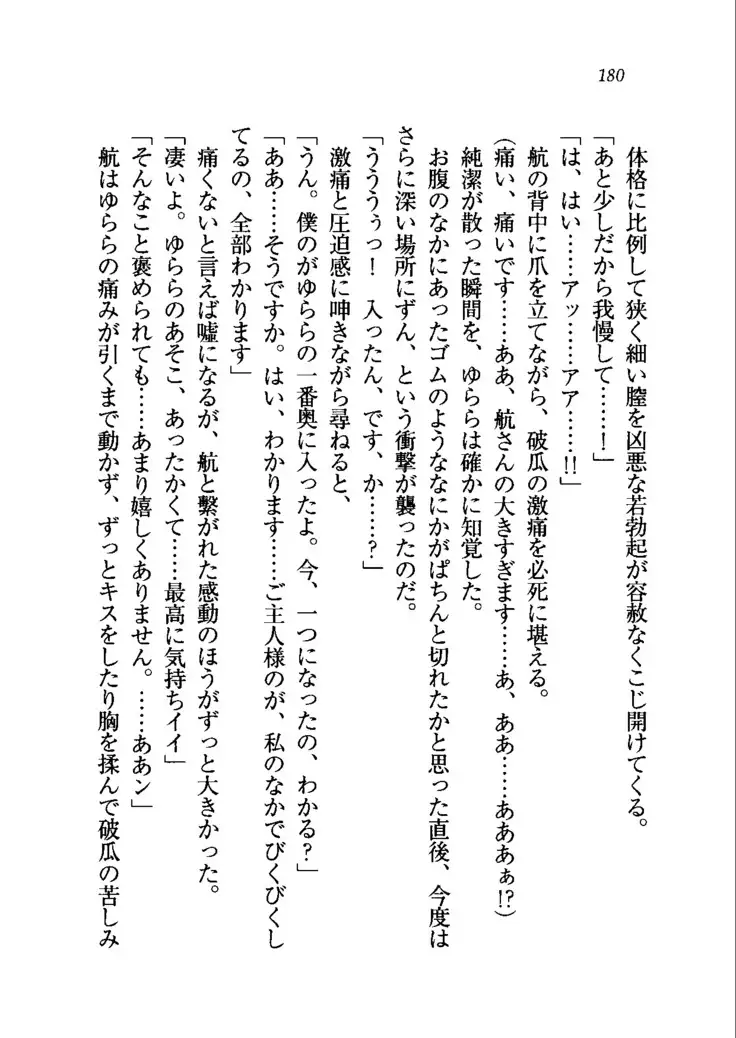 180
体格に比例して狭く細い膣を凶悪な若勃起が容赦なくこじ開けてくる。
「あと少しだから我慢して……！」
「は、はい……アッ……アア……!!」
航の背中に爪を立てながら、破瓜の激痛を必死に堪える。
(痛い、痛いです……ああ、航さんの大きすぎます……あ、ああ……あああぁ!?)
純潔が散った瞬間を、ゆららは確かに知覚した。
お腹のなかにあったゴムのようななにかがぱちんと切れたかと思った直後、今度は
さらに深い場所にずん、という衝撃が襲ったのだ。
「うううぅっ！　入ったん、です、か……？」
激痛と圧迫感に呻きながら尋ねると、
「うん。僕のがゆららの一番奥に入ったよ。今、一つになったの、わかる？」
「ああ……そうですか。はい、わかります……ご主人様のが、私のなかでびくびくし
てるの、全部わかります」
痛くないと言えば嘘になるが、航と繫がれた感動のほうがずっと大きかった。
「凄いよ。ゆららのあそこ、あったかくて……最高に気持ちイイ」
「そんなこと褒められても……あまり嬉しくありません。……ああン」
航はゆららの痛みが引くまで動かず、ずっとキスをしたり胸を揉んで破瓜の苦しみ